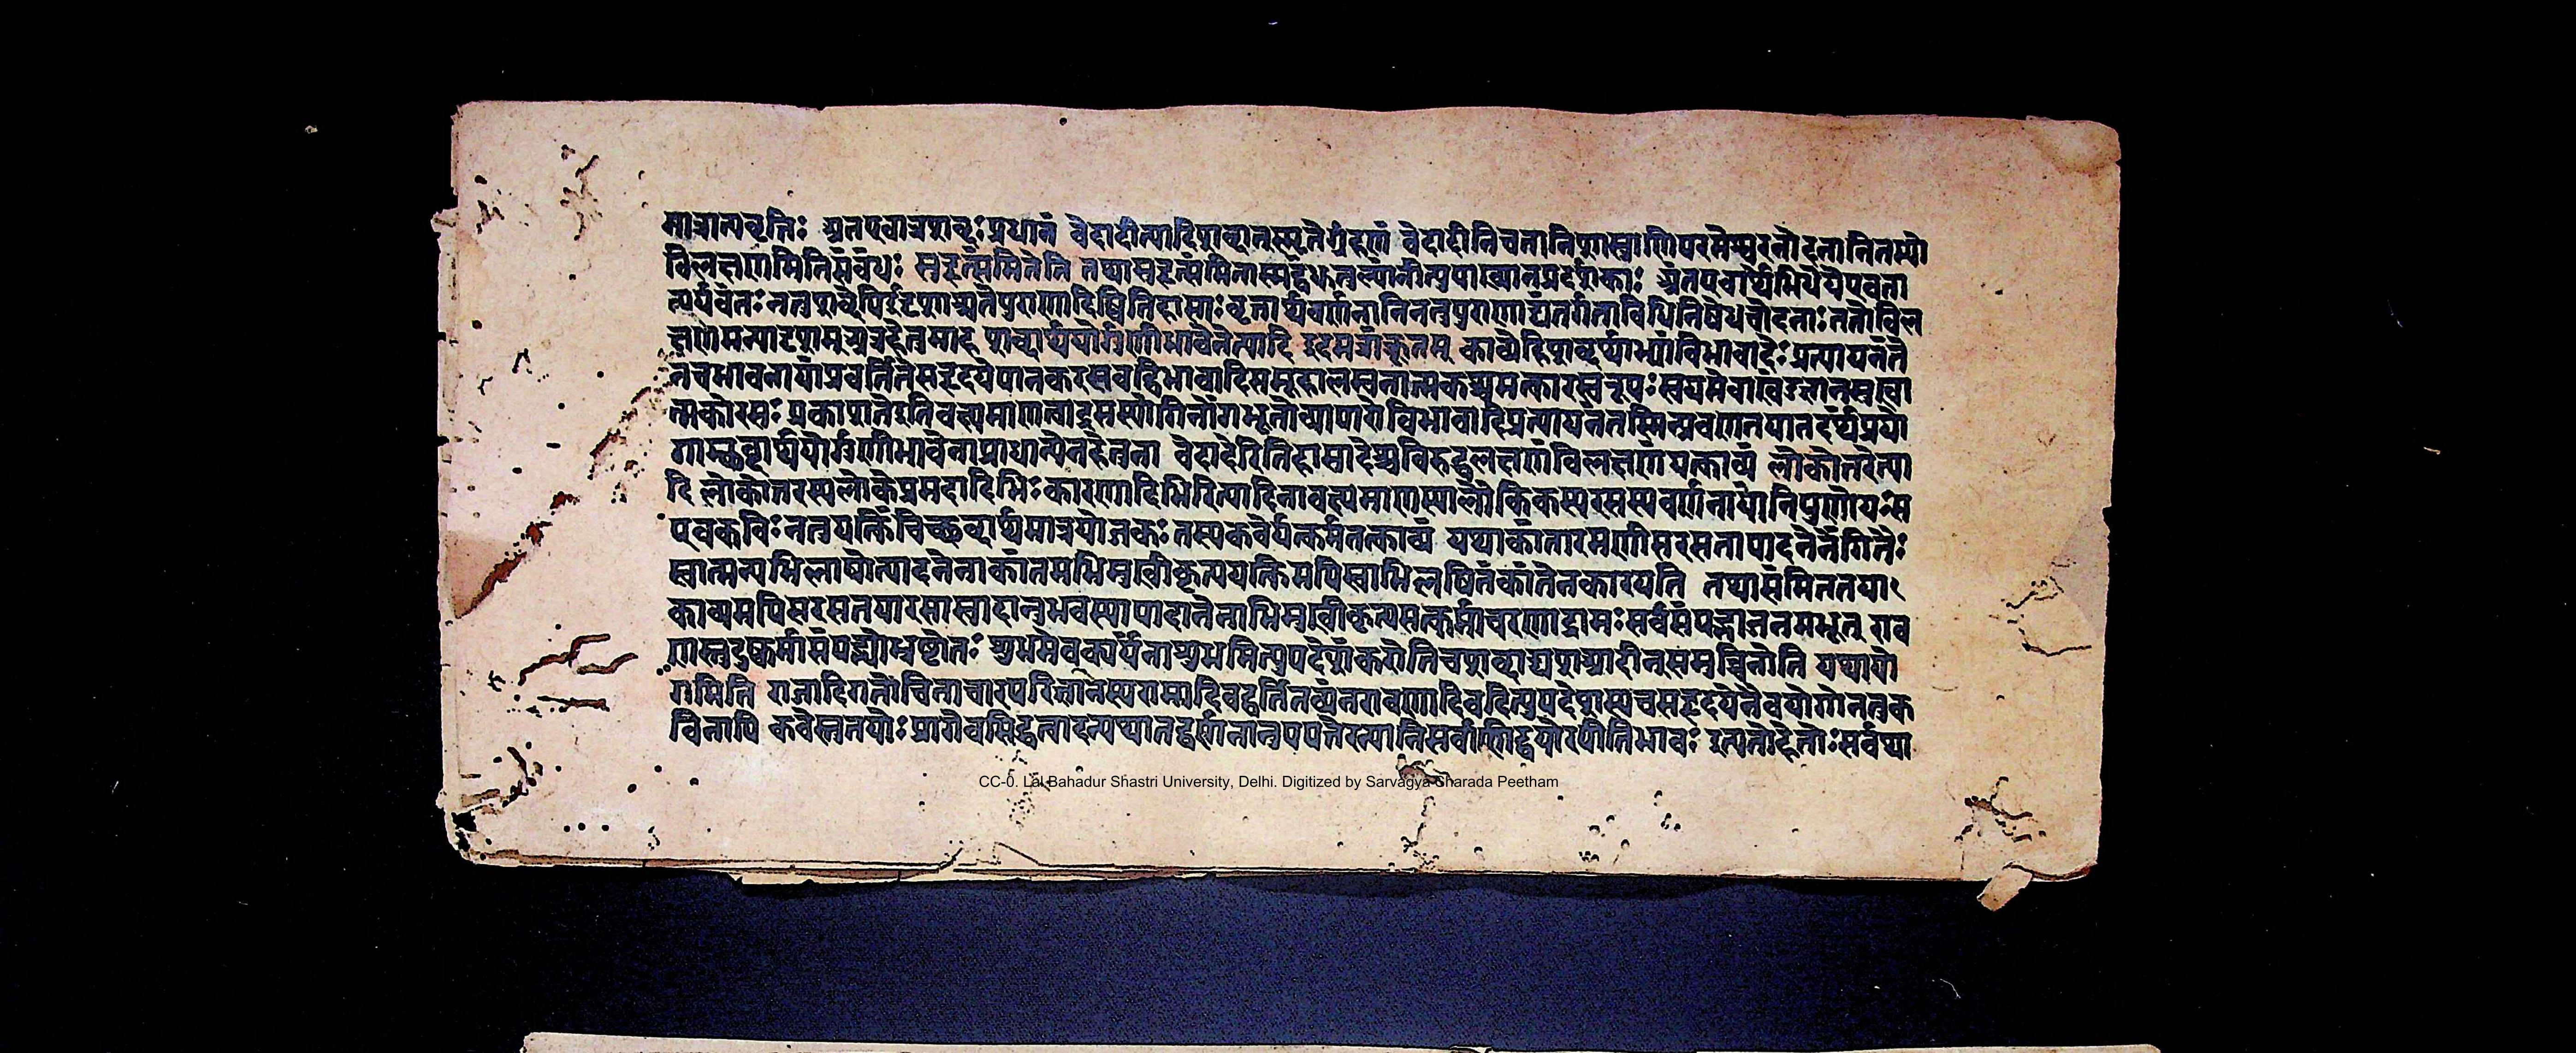 मात्रात्प्रवृत्तिः अतएवात्रशब्दःप्रधानं वेदादीत्यादिशब्दात्स्मृतेर्ग्रहणं वेदादीनिचतानिशास्त्राणिपरमेश्वरनोदनातितेभ्यो
विलक्षणमितिसंबंधः सुहृत्संमितेति तथासुहृत्संमितास्मद्वक्तृत्वा इत्युपाख्यानप्रदर्शकाः अतएवार्थमिथेयैपवता
त्पर्यवंतः नतुशब्देपिदृढशाश्चतेपुराणादिष्वितिहासाः वृत्तार्थवर्णनानिननुपुराणाद्यंतर्गताविधिनिषेधचोदनाः ततोविल
क्षणमन्यादृशमुग्रग्रहेतुमाह शब्दार्थयोर्गुणीभावेनेत्यादि इदमत्राकूतम् काव्येहिशब्दार्थाभ्यांविभावादेः प्रत्यायनंते
नचभावनायांप्रवर्तितेसहृदयेपानकरसवद्विभावादिसमूहालम्बनात्मकश्चमत्कारस्वरूपः स्वयमेवाविज्ञातसुखा
त्मकोरसः प्रकाशतेइतिवक्ष्यमाणत्वाद्रसस्यांगिनोंगभूतोव्यापारोविभावादिप्रत्यायनंतस्मिन्प्रवणतयातदर्थप्रयो
गाच्छब्दार्थयोर्गुणीभावेनाप्राधान्येनहेतुना वेदादेरितिहासादेश्चविरुद्धलक्षणंविलक्षणंयत्काव्यं लोकोत्तरेत्या
दि लोकोत्तरस्यलोकेप्रमदादिभिः कारणादिभिरित्यादिनावक्ष्यमाणस्यालौकिकस्यरसस्यवर्णनायांनिपुणोयः स
एवकविः नतुयत्किंचिच्छब्दार्थमात्रयोजकः तस्यकवेर्यत्कर्मतत्काव्यं यथाकांतारमणीसरसतापादनेनंगितैः
स्वात्मन्यभिलाषोत्पादनेनाकांतमभिमुखीकृत्ययत्किमपिस्वाभिलषितंकांतेनकारयति तथासंमिततया
काव्यमपिसरसतयारसास्वादानुभवस्यापादानेनाभिमुखीकृत्यसत्कर्माचरणाद्रामः सर्वसंपद्भाजनमभूत् राव
णास्तुदुष्कर्मासंपद्भ्योभ्रष्टोतः शुभमेवकार्यंनाशुभमित्युपदेशंकरोतिचशब्दाद्यशआदीन्समुच्चिनोति यथायो
गमिति राजादिगतोचिताचारपरिज्ञानस्यरामादिवद्वर्तितव्यंनरावणादिवदित्युपदेशस्यचसहृदयेनैवयोगोनतुक
विनापि कवेस्तुतयोः प्रागेवसिद्धत्वादन्यथातद्वर्णनानुपपत्तेरन्यानिसर्वाणिद्वयोरपीतिभावः इत्यतोहेतोः सर्वथा
CC-0. Lal Bahadur Shastri University, Delhi. Digitized by Sarvagya Sharada Peetham